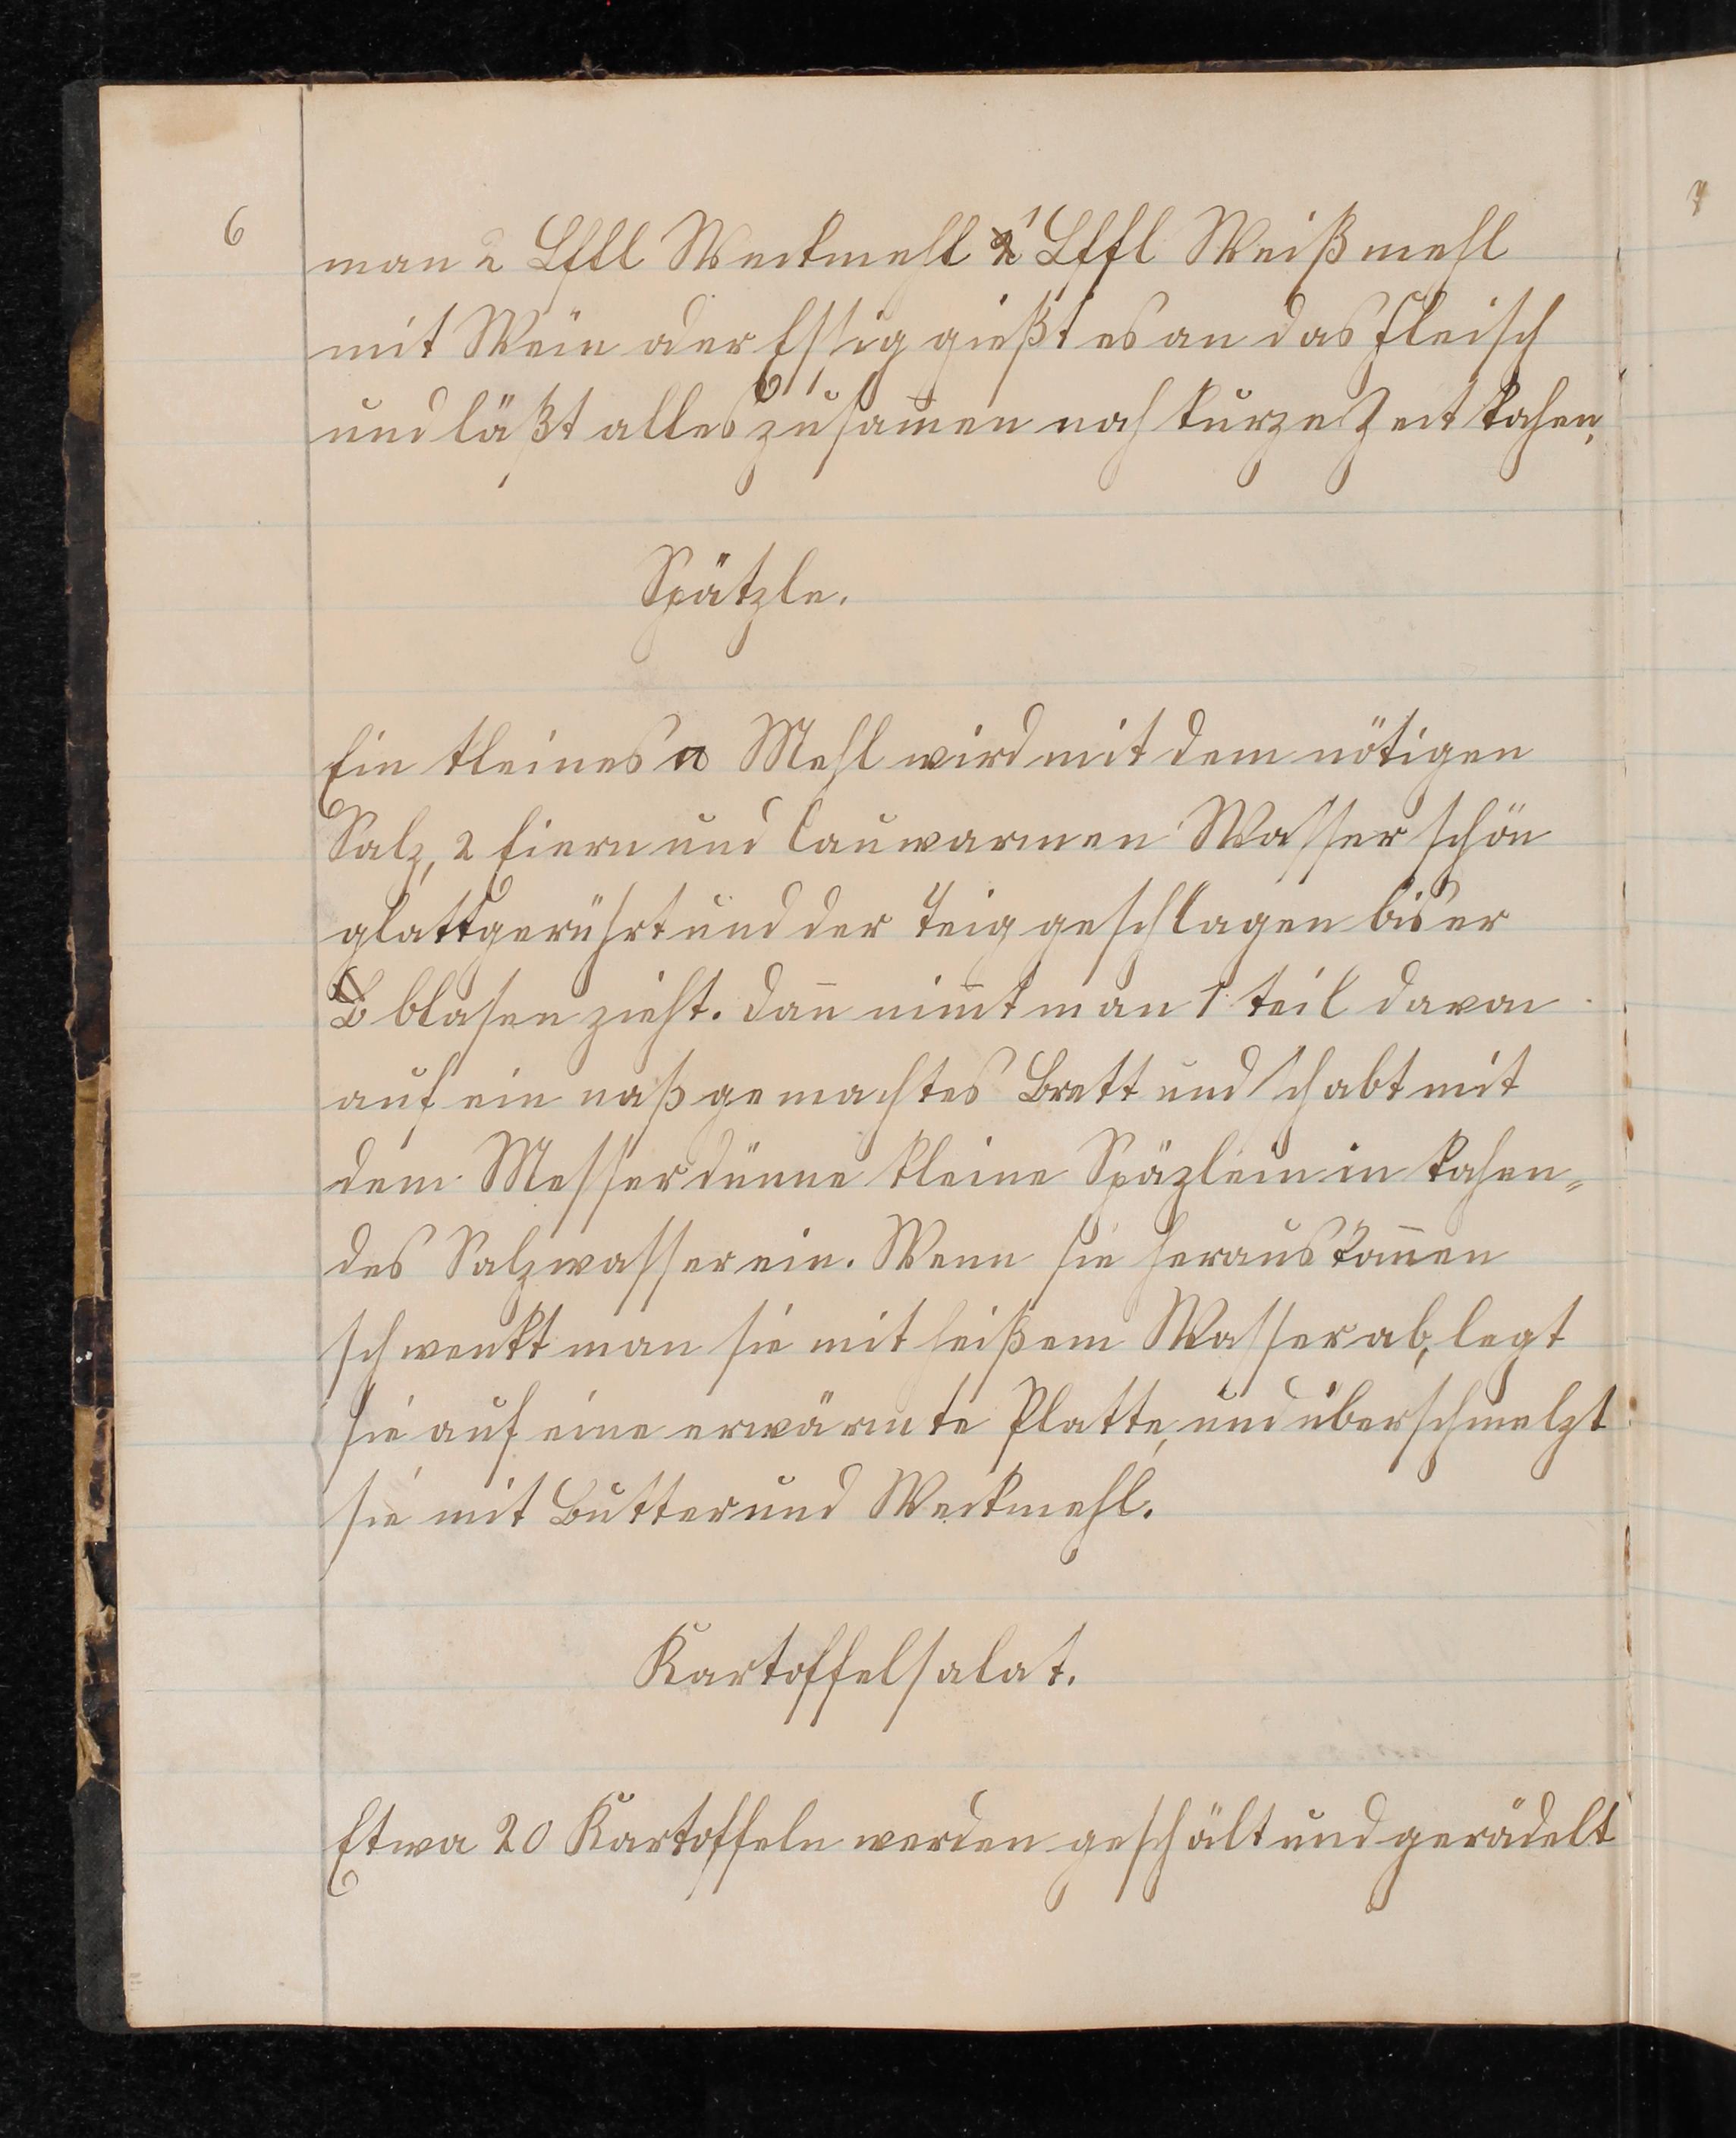 6
man 2 Lffl Weckmehl 1 Lffl Weißmehl
mit Wein oder Essig gießt es an das Fleisch
und läßt alles zusam̅en noch kurze Zeit kochen,
Spätzle.
Ein kleines Mehl wird mit dem nötigen
Salz, 2 Eiern und lauwarmen Wasser schön
glattgerührt und der Teig geschlagen bis er
blasen zieht. Dan̅ nim̅t man 1 teil davon
auf ein naß gemachtes Brett und schabt mit
dem Messer dünne kleine Späzlein in kochen„
des Salzwasser ein. Wenn sie heraus kom̅en
schwenkt man sie mit heißem Wasser ab, legt
sie auf eine erwärmte Platte, und überschmelzt
sie mit Butter und Weckmehl.
Kartoffelsalat.
Etwa 20 Kartoffeln werden geschält und gerädelt
7